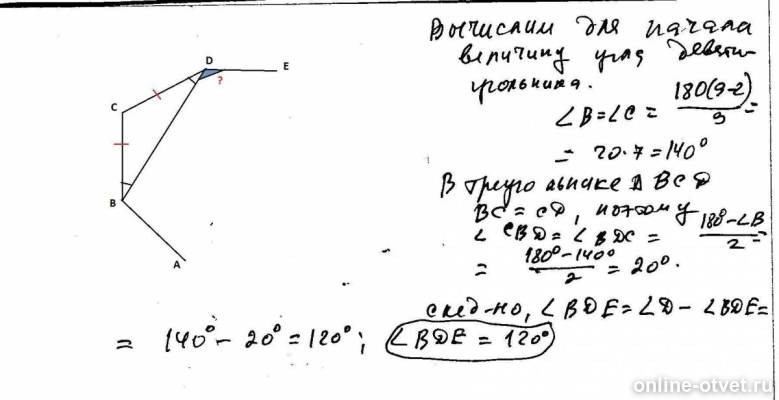 Вычислим для начала
величину угла девяти
угольника.
∠B=∠C= 180(9-2)/9 =
= 20·7=140°
В треугольнике Δ BCD
BC=CD, поэтому
∠CBD=∠BDC= 180°-∠B/2 =
= 180°-140°/2 = 20°.
след-но, ∠BDE=∠D-∠BDE=
= 140°-20°=120°; ∠BDE=120°
D
E
?
C
B
A
online-otvet.ru